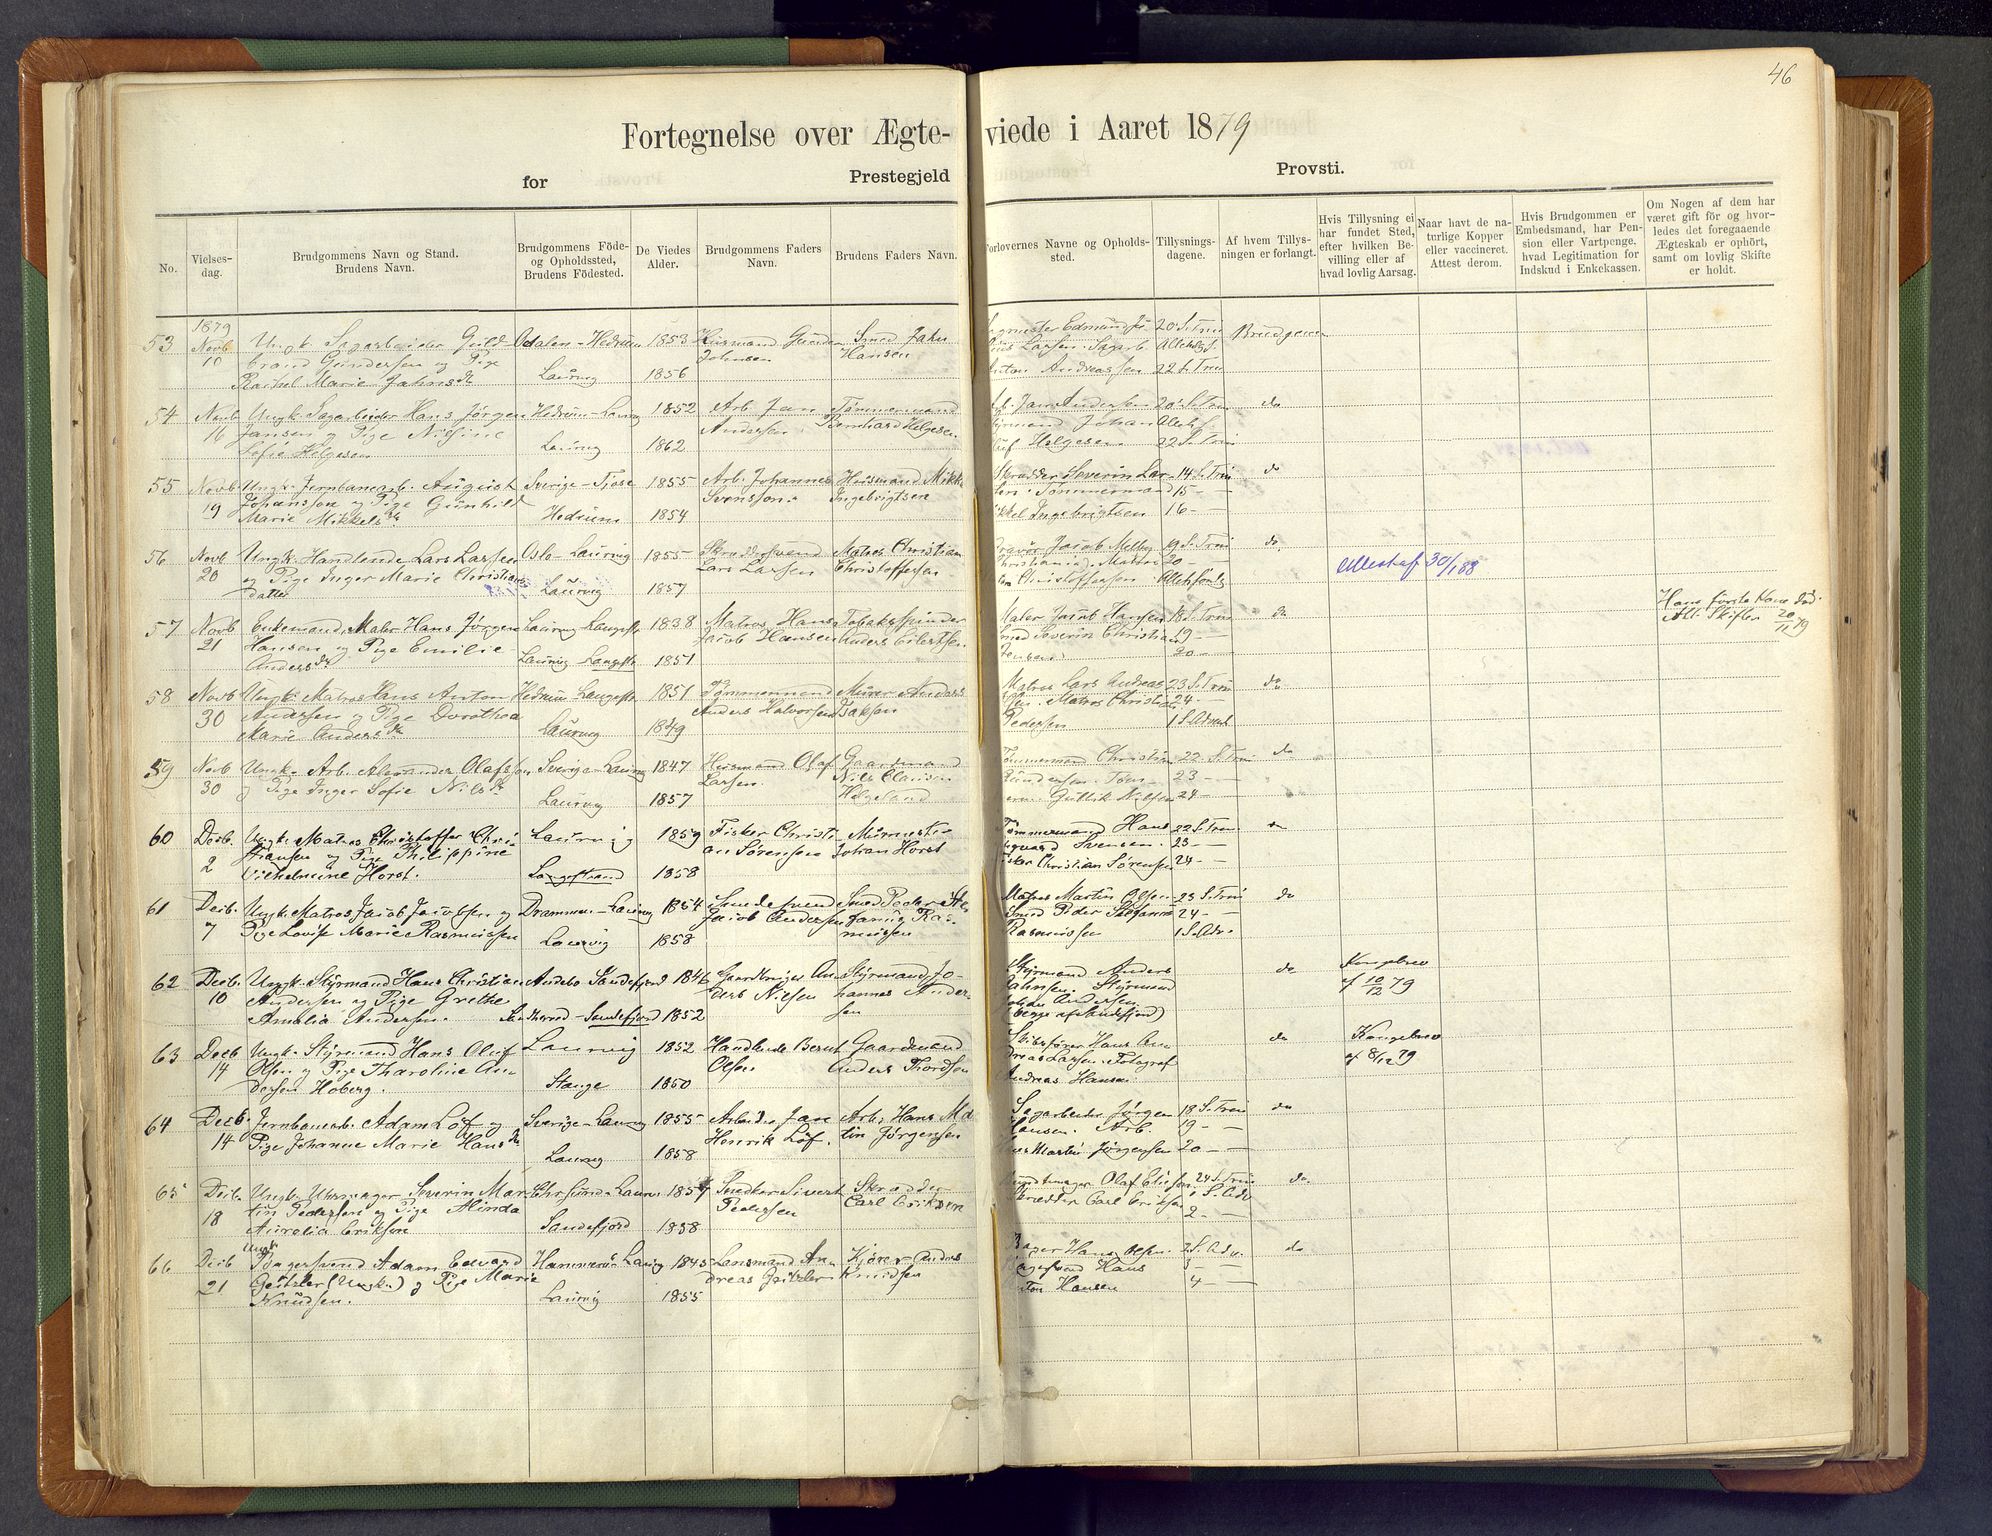 46
Fortegnelse over Ægteviede i Aaret 1879
for Prestegjeld Provsti.
No.
Vielsesdag.
Brudgommens Navn og Stand.
Brudens Navn.
Brudgommens Føde- og Opholdssted,
Brudens Fødested.
De Viedes Alder.
Brudgommens Faders Navn.
Brudens Faders Navn.
Forlovernes Navne og Opholdssted.
Tillysningsdagene.
Af hvem Tillysningen er forlangt.
Hvis Tillysning ei har fundet Sted, efter hvilken Bevilling eller af hvad lovlig Aarsag.
Naar havt de naturlige Kopper eller vaccineret. Attest derom.
Hvis Brudgommen er Embedsmand, har Pension eller Vartpenge, hvad Legitimation for Indskud i Enkekassen.
Om Nogen af dem har været gift før og hvorledes det foregaaende Ægteskab er ophørt, samt om lovlig Skifte er holdt.
1879
53 Novb 10 Ungk. Sagarbeider Guldbrand Gundersen og Pige Rachel Marie Jahnsdr
Odalen - Hedrum
Laurvig
1853
1856
Husmand Gunder Johnsen
Smed Jahn Hansen
Larsen. Sagarb.
Anton Andreassen
20 S. Trin
22 S. Trin
Brudgommen
54 Novb 16 Ungk. Sagarbeider Hans Jørgen Jansen og Pige Nilsine Sofie Helgesen
Hedrum - Laurvig
Laurvig
1852
1862
Arb. Jan Andersen
Tømmermand Bernhard Helgesen
Arb. Jan Andersen
Styrmand Johan
Helgesen
20 S. Trin
22 S. Trin
do
55 Novb 19 Ungk. Jernbanearb. August Johansson og Pige Gunhild Marie Mikkelsdr
Sverige - Tjose
Hedrum
1855
1854
Arb. Johannes Svensson.
Husmand Mikkel Ingebrigtsen
Skrædder Severin Larsen. Tømmermand
Mikkel Ingebrigtsen
14 S. Trin
15 -
16 -
do
56 Novb 20 Ungk. Handlende Lars Larsen og Pige Inger Marie Christiansdatter
Oslo - Laurvig
Laurvig
1855
1857
Skræddersvend Lars Larsen
Matros Christian Christoffersen
Gravør Jacob Melby
Christiania. Matros
Christoffersen
19 S. Trin
20 -
do.
Attest af 30/1 88
57 Novb 21 Enkemand, Maler Hans Jørgen Hansen og Pige Emilie Andersdr
Laurvig Langestr
Laurvig Langestr
1838
1851
Matros Hans Jacob Hansen
Tobaksspinder Anders Eilertsen
Maler Jacob Hansen
Smed Severin Christian
Jensen.
18 S. Trin
19 -
20 -
do
Hans første Kone død.
Att. Skifter 20/11 79
58 Novb 30 Ungk. Matros Hans Anton Andersen og Pige Dorothea Marie Andersdr
Hedrum Langestr
Laurvig
1851
1849
Tømmermand Anders Halvorsen
Murer Anders Isaksen
Matros Lars Andreassen. Matros Christian
Pedersen
23 S. Trin
24 -
1 S. Advent
do
59 Novb 30 Ungk. Arb. Alexander Olafsson og Pige Inger Sofie Nilsdr
Sverige - Laurvig
Laurvig
1847
1857
Husmand Olaf Larsen.
Gaardmand Nils Clausen Helgeland
Tømmermand Christian
Gundersen. Tøm-
Guttik Nielsen
22 S. Trin
23 -
24 -
do
60 Decb. 2 Ungk. Matros Christoffer Christiansen og Pige Philippine Vilhelmine Horst.
Laurvig
Langestrand
1859
1858
Fisker Christian Sørensen
Murmester Johan Horst
Tømmermand Hans
Svensen.
Fisker Christian Sørensen
22 S. Trin
23 -
24 -
do
61 Decb. 7 Ungk. Matros Jacob Jacobsen og Pige Lovise Marie Rasmussen
Drammen - Laurvig
Laurvig
1854
1858
Smedesvend Jacob Andersen
Smed Peder Stefanus Rasmussen
Matros Martin Olsen
Smed Peder Stefanus
Rasmussen
23 S. Trin
24 -
1 S. Adv.
do
62 Decb. 10 Ungk. Styrmand Hans Christian Andersen og Pige Grethe Amalia Andersen.
Andebo Sandefjord
Sandherred - Sandefjord
1846
1852
Gaardbruger Anders Nilsen
Styrmand Johannes Andersen
Styrmand Anders
Jahnsen. Styrmand
Johan Andersen.
(begge af Sandefjord)
do
Kongebrev
af 10/12 79
63 Decb 14 Ungk. Styrmand Hans Oluf Olsen og Pige Tharoline Andersen Hoberg.
Laurvig
Stange
1852
1850
Handlende Bernt Olsen
Gaardmand Anders Thordsen
Skibsfører Hans Andreas Larsen. Fotograf
Andreas Hansen.
do
Kongebrev
af 8/12 79
64 Decb. 14 Jernbanearb. Adam Löf og Pige Johanne Marie Hansdr
Sverige - Laurvig
Laurvig
1855
1858
Arbeider Jan Henrik Löf.
Arb. Hans Martin Jørgensen
Sagarbeider Jørgen
Hansen. Arb.
Hans Martin Jørgensen
18 S. Trin
19 -
20 -
do
65 Decb. 18 Ungk. Uhrmager Severin Martin Pedersen og Pige Alinda Aurelia Eriksen
Chrsund - Laurv.
Sandefjord
1857
1858
Snedker Sivert Pedersen
Skrædder Carl Eriksen
Olaf
Skrædder Carl Eriksen
24 S. Trin
1 S. Adv
2 -
do.
66 Decb 21 Ungk. Bagersvend Adam Edvard Geitzler (Ungk.) og Pige Marie Knudsen.
Hammerø Laurvig
Laurvig
1845
1855
Lensmand Andreas Geitzler
Kjører Anders Knudsen
Bager Hans Olsen.
Bagersvend Hans
Anton Hansen
2 S. Adv.
3 -
4 -
do